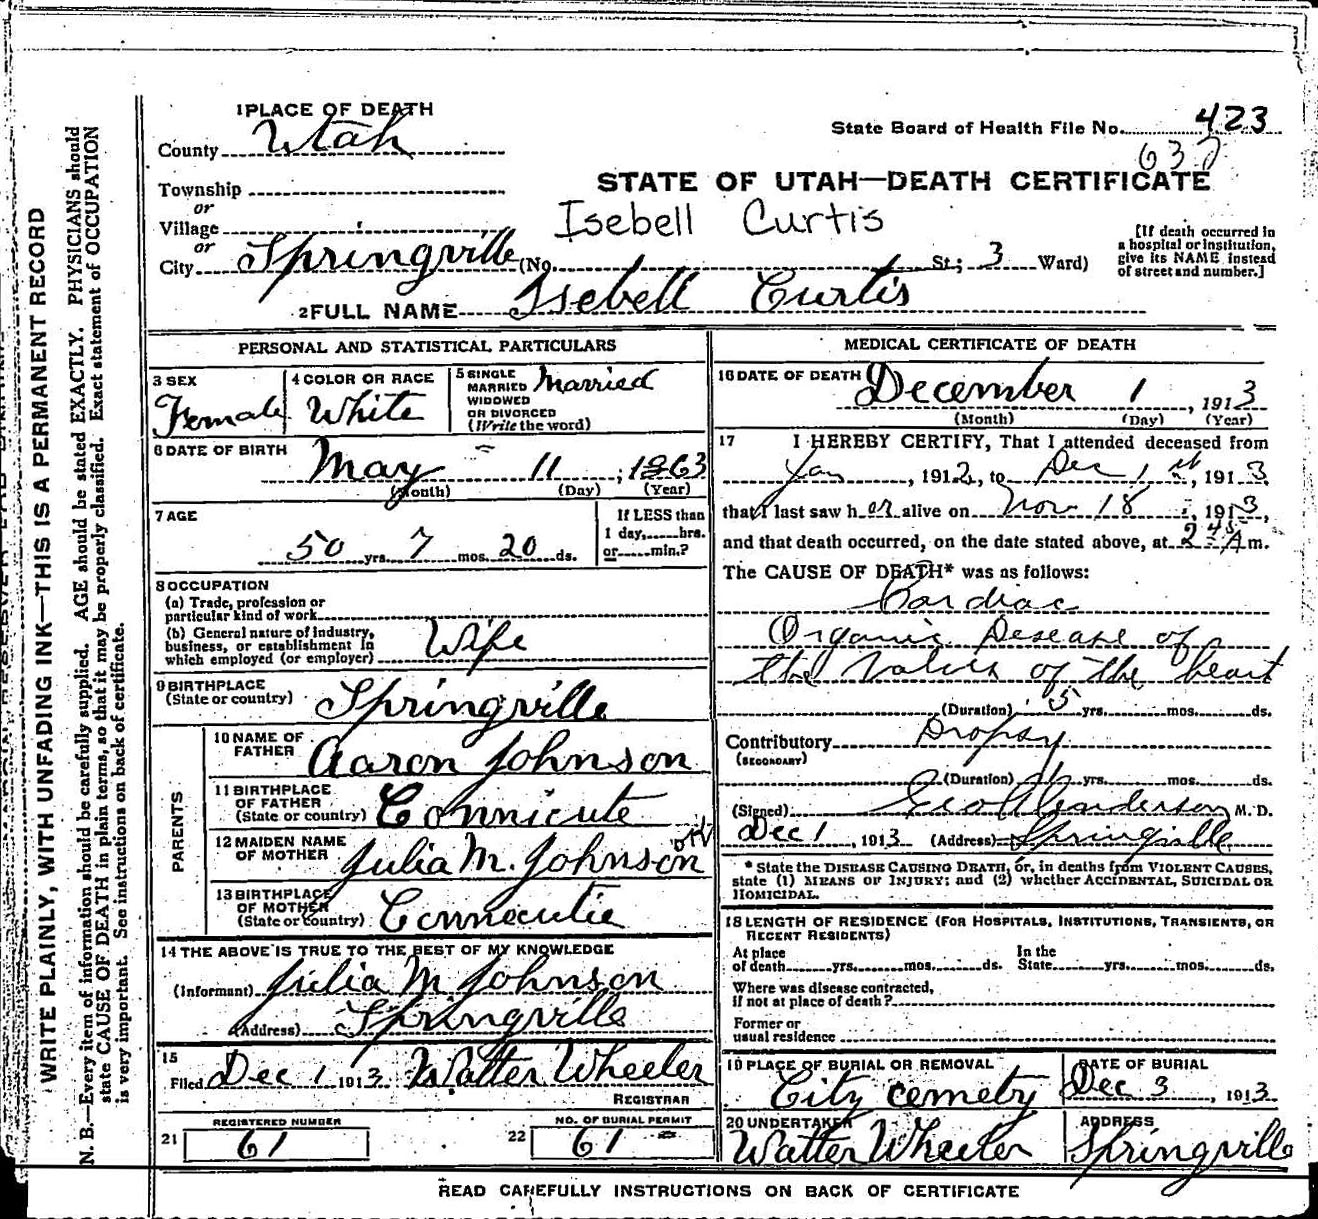 1 PLACE OF DEATH
County Utah
State Board of Health File No. 423
637
Township
or
Village
or
City Springville (No. St; 3 Ward)
STATE OF UTAH—DEATH CERTIFICATE
Isebell Curtis
[If death occurred in
a hospital or institution,
give its NAME instead
of street and number.]
2 FULL NAME Isebell Curtis
PERSONAL AND STATISTICAL PARTICULARS
3 SEX
Female
4 COLOR OR RACE
White
5 SINGLE
MARRIED
WIDOWED
OR DIVORCED
(Write the word)
Married
6 DATE OF BIRTH
May 11, 1863
(Month) (Day) (Year)
7 AGE
50 yrs. 7 mos. 20 ds.
If LESS than
1 day, hrs.
or min.?
8 OCCUPATION
(a) Trade, profession or
particular kind of work
(b) General nature of industry,
business, or establishment in
which employed (or employer)
Wife
9 BIRTHPLACE
(State or country) Springville
PARENTS
10 NAME OF
FATHER Aaron Johnson
11 BIRTHPLACE
OF FATHER
(State or country) Connicute
12 MAIDEN NAME
OF MOTHER Julia M. Johnson
13 BIRTHPLACE
OF MOTHER
(State or country) Connecutie
14 THE ABOVE IS TRUE TO THE BEST OF MY KNOWLEDGE
(Informant) Julia M Johnson
(Address) Springville
15
Filed Dec 1 1913 Walter Wheeler
REGISTRAR
21 REGISTERED NUMBER
61
22 NO. OF BURIAL PERMIT
61
MEDICAL CERTIFICATE OF DEATH
16 DATE OF DEATH December 1, 1913
(Month) (Day) (Year)
17 I HEREBY CERTIFY, That I attended deceased from
Jan, 1912, to Dec 1st, 1913
that I last saw her alive on Nov 18, 1913,
and that death occurred, on the date stated above, at 2 45 A m.
The CAUSE OF DEATH* was as follows:
Cardiac
Organic Desease of
the Valves of the heart
(Duration) 5 yrs. mos. ds.
Contributory Dropsy
(SECONDARY)
(Duration) yrs. mos. ds.
(Signed) Geo Anderson M. D.
Dec 1, 1913 (Address) Springville
* State the DISEASE CAUSING DEATH, or, in deaths from VIOLENT CAUSES,
state (1) MEANS OF INJURY; and (2) whether ACCIDENTAL, SUICIDAL OR
HOMICIDAL.
18 LENGTH OF RESIDENCE (FOR HOSPITALS, INSTITUTIONS, TRANSIENTS, OR
RECENT RESIDENTS)
At place
of death yrs. mos. ds.
In the
State yrs. mos. ds.
Where was disease contracted,
if not at place of death?
Former or
usual residence
19 PLACE OF BURIAL OR REMOVAL
City cemetry
DATE OF BURIAL
Dec 3, 1913
20 UNDERTAKER
Walter Wheeler
ADDRESS
Springville
READ CAREFULLY INSTRUCTIONS ON BACK OF CERTIFICATE
WRITE PLAINLY, WITH UNFADING INK—THIS IS A PERMANENT RECORD
N. B.—Every item of information should be carefully supplied. AGE should be stated EXACTLY. PHYSICIANS should
state CAUSE OF DEATH in plain terms, so that it may be properly classified. Exact statement of OCCUPATION
is very important. See instructions on back of certificate.